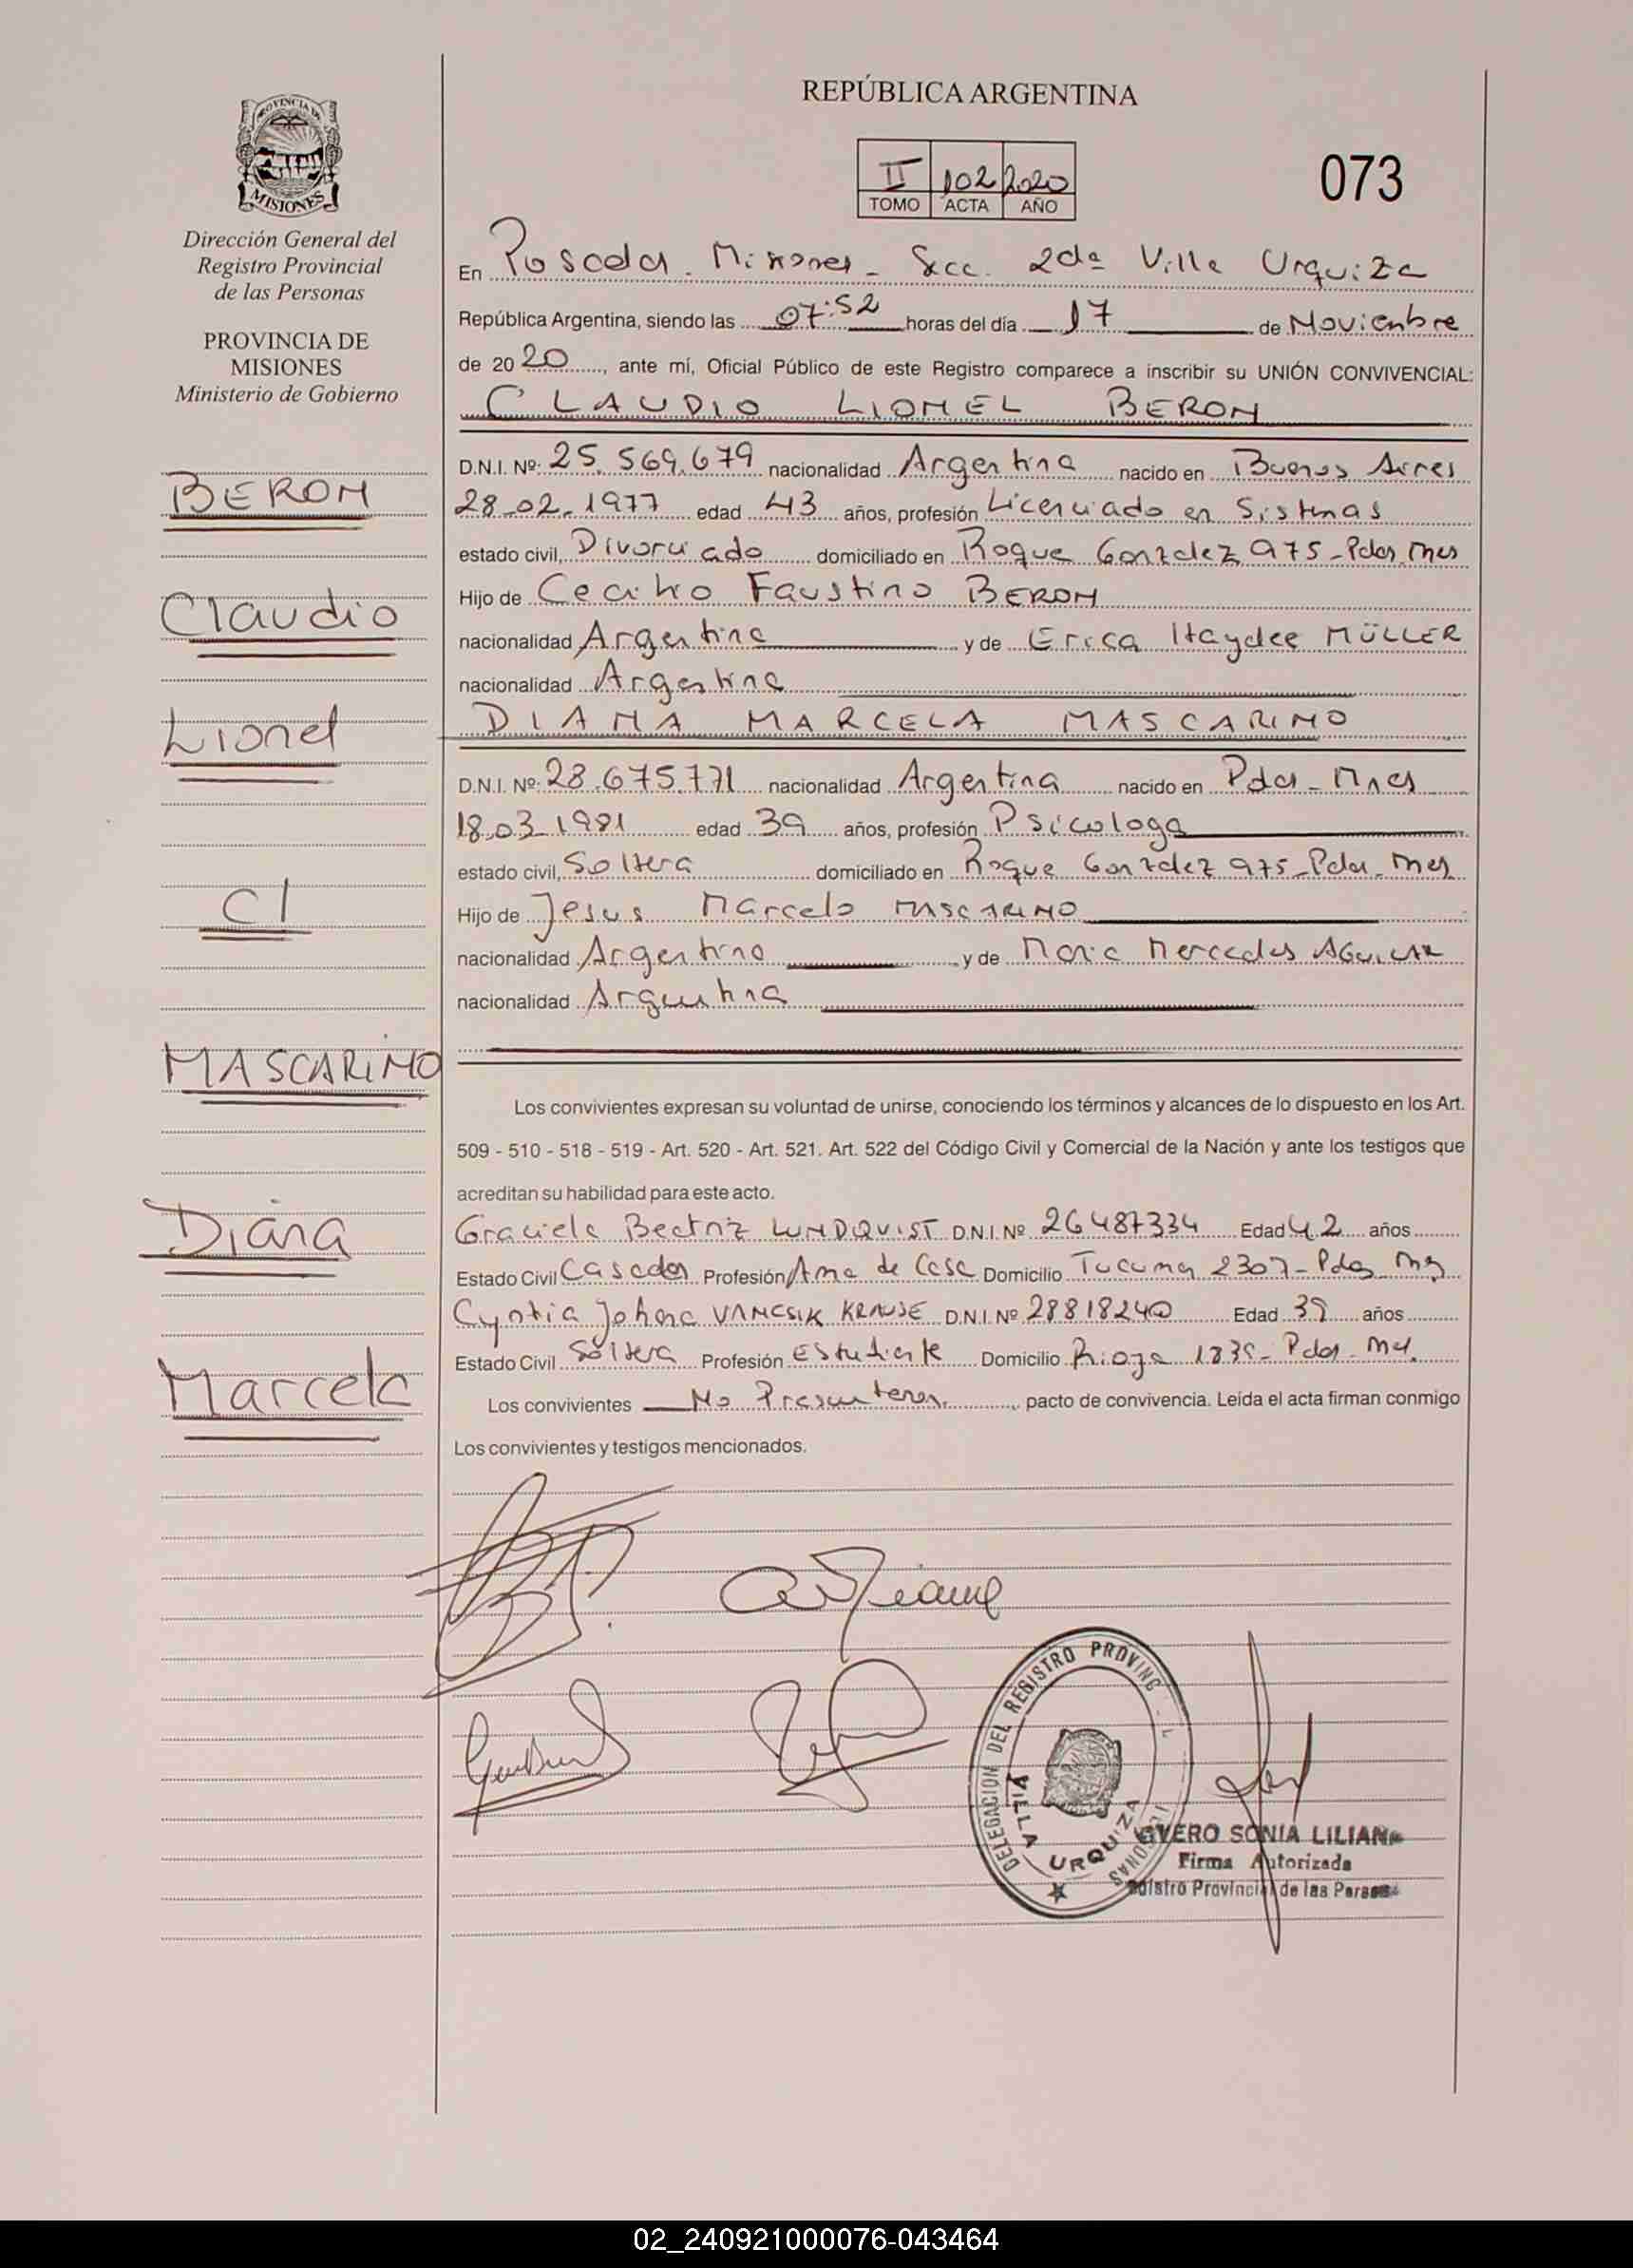 REPÚBLICA ARGENTINA
PROVINCIA DE
MISIONES
II 102 2020
TOMO ACTA AÑO
073
Dirección General del
Registro Provincial
de las Personas
PROVINCIA DE
MISIONES
Ministerio de Gobierno
BERON
Claudio
Lionel
C/
MASCARINO
Diana
Marcela
En Posadas. Misiones - Secc. 2da Villa Urquiza
República Argentina, siendo las 07:52 horas del día 17 de Noviembre
de 2020, ante mí, Oficial Público de este Registro comparece a inscribir su UNIÓN CONVIVENCIAL:
CLAUDIO LIONEL BERON
D.N.I. Nº: 25.569.679 nacionalidad Argentina nacido en Buenos Aires
28-02-1977 edad 43 años, profesión Licenciado en Sistemas
estado civil, Divorciado domiciliado en Roque Gonzalez 975 - Pdas. Mnes
Hijo de Cecilio Faustino BERON
nacionalidad Argentina y de Erica Haydee MÜLLER
nacionalidad Argentina
DIANA MARCELA MASCARINO
D.N.I. Nº: 28.675.771 nacionalidad Argentina nacido en Pdas - Mnes
18-03-1981 edad 39 años, profesión Psicologa
estado civil, Soltera domiciliado en Roque Gonzalez 975 - Pdas - Mnes
Hijo de Jesus Marcelo MASCARINO
nacionalidad Argentino y de Maria Mercedes AGUILAR
nacionalidad Argentina
Los convivientes expresan su voluntad de unirse, conociendo los términos y alcances de lo dispuesto en los Art.
509 - 510 - 518 - 519 - Art. 520 - Art. 521. Art. 522 del Código Civil y Comercial de la Nación y ante los testigos que
acreditan su habilidad para este acto.
Graciela Beatriz LUNDQVIST D.N.I. Nº 26487334 Edad 42 años
Estado Civil Casada Profesión Ama de Casa Domicilio Tucuman 2307 - Pdas Mns
Cyntia Johana VANCSIK KRAUSE D.N.I. Nº 28818240 Edad 39 años
Estado Civil Soltera Profesión Estudiante Domicilio Rioja 1835 - Pdas - Mnes.
Los convivientes No Presentaron, pacto de convivencia. Leida el acta firman conmigo
Los convivientes y testigos mencionados.
DELEGACION DEL REGISTRO PROVINC L PERSONAS
VILLA URQUIZA
SONIA LILIANA
Firma Autorizada
Registro Provincial de las Personas
02_240921000076-043464